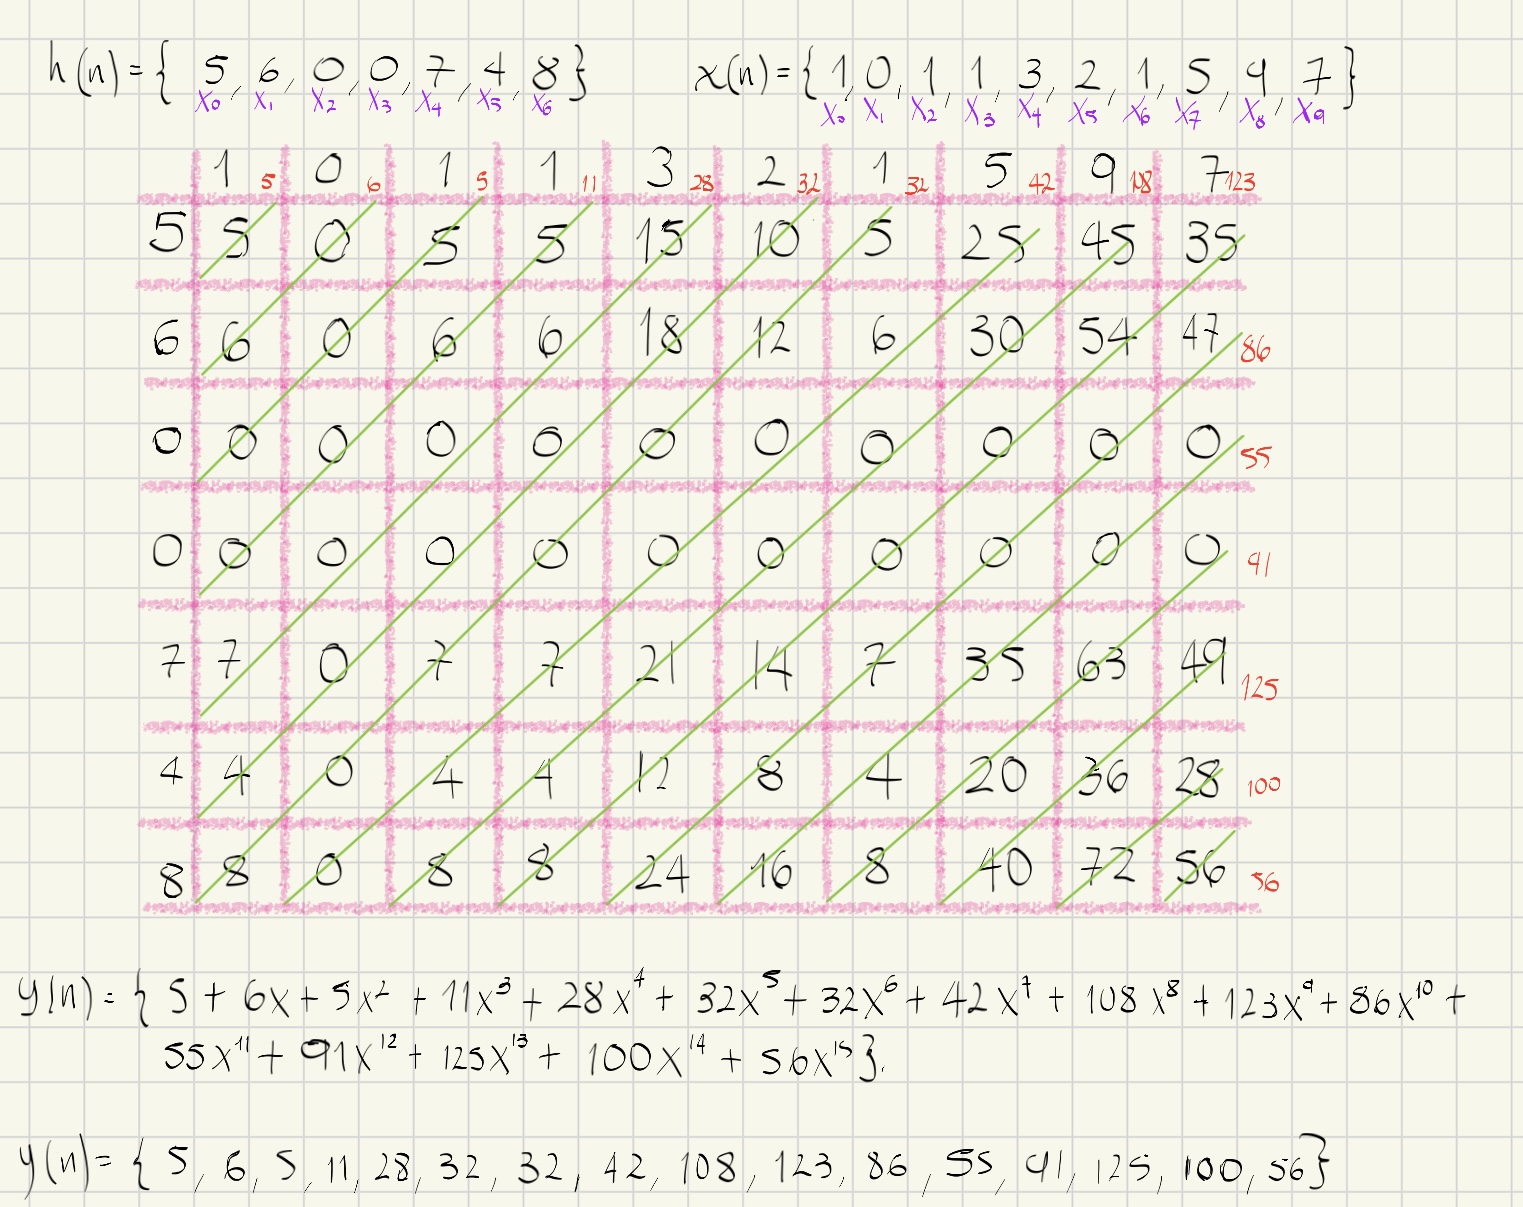 h(n) = { 5, 6, 0, 0, 7, 4, 8 } x(n) = { 1, 0, 1, 1, 3, 2, 1, 5, 9, 7 }
x₀ x₁ x₂ x₃ x₄ x₅ x₆ x₀ x₁ x₂ x₃ x₄ x₅ x₆ x₇ x₈ x₉
1 5 0 6 1 5 1 11 3 28 2 32 1 32 5 42 9 108 7 123
5 5 0 5 5 15 10 5 25 45 35
6 6 0 6 6 18 12 6 30 54 47 86
0 0 0 0 0 0 0 0 0 0 0 55
0 0 0 0 0 0 0 0 0 0 0 91
7 7 0 7 7 21 14 7 35 63 49 125
4 4 0 4 4 12 8 4 20 36 28 100
8 8 0 8 8 24 16 8 40 72 56 56
y(n) = { 5 + 6x + 5x² + 11x³ + 28x⁴ + 32x⁵ + 32x⁶ + 42x⁷ + 108x⁸ + 123x⁹ + 86x¹⁰ +
55x¹¹ + 91x¹² + 125x¹³ + 100x¹⁴ + 56x¹⁵ }.
y(n) = { 5, 6, 5, 11, 28, 32, 32, 42, 108, 123, 86, 55, 91, 125, 100, 56 }